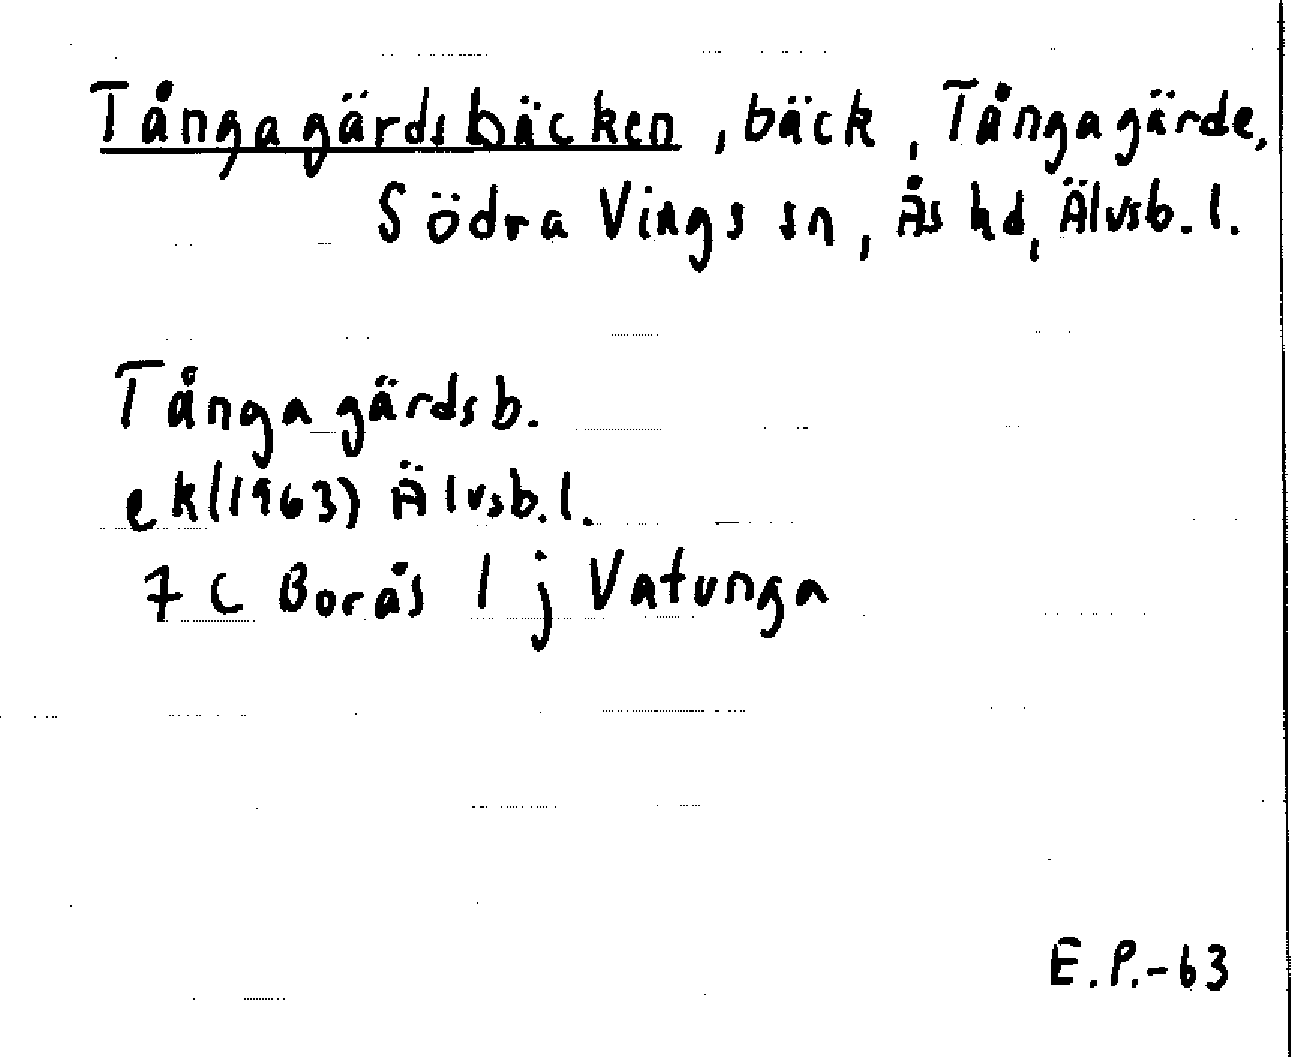 Tångagärdsbäcken, bäck, Tångagärde,
Södra Vings sn, Ås hd, Älvsb. l.
Tångagärdsb.
ek (1963) Älvsb. l.
7 C Borås 1 j Vatunga
E.P.-63